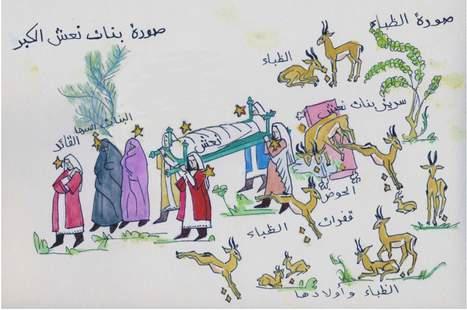 صورة الظباء
صورة بنات نعش الكبر
الظباء
سرير بنات نعش
البنات
القائد
نعش
الحوض
قفزات الظباء
الظباء وأولادها